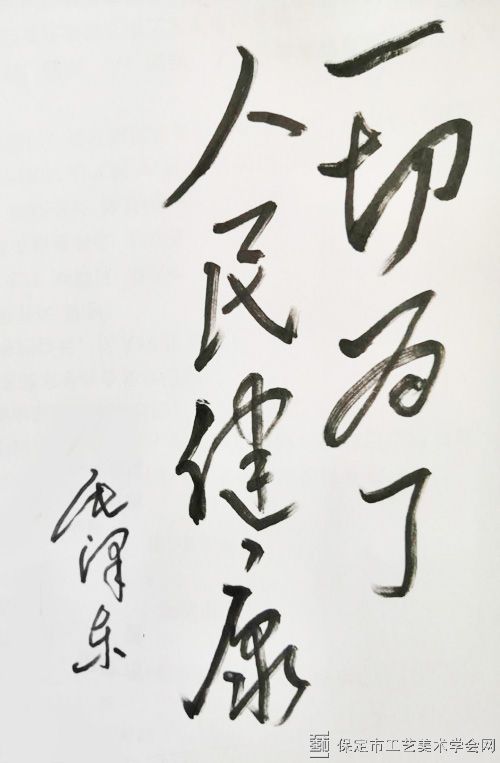 一切为了
人民健康
毛泽东
保定市工艺美术学会网